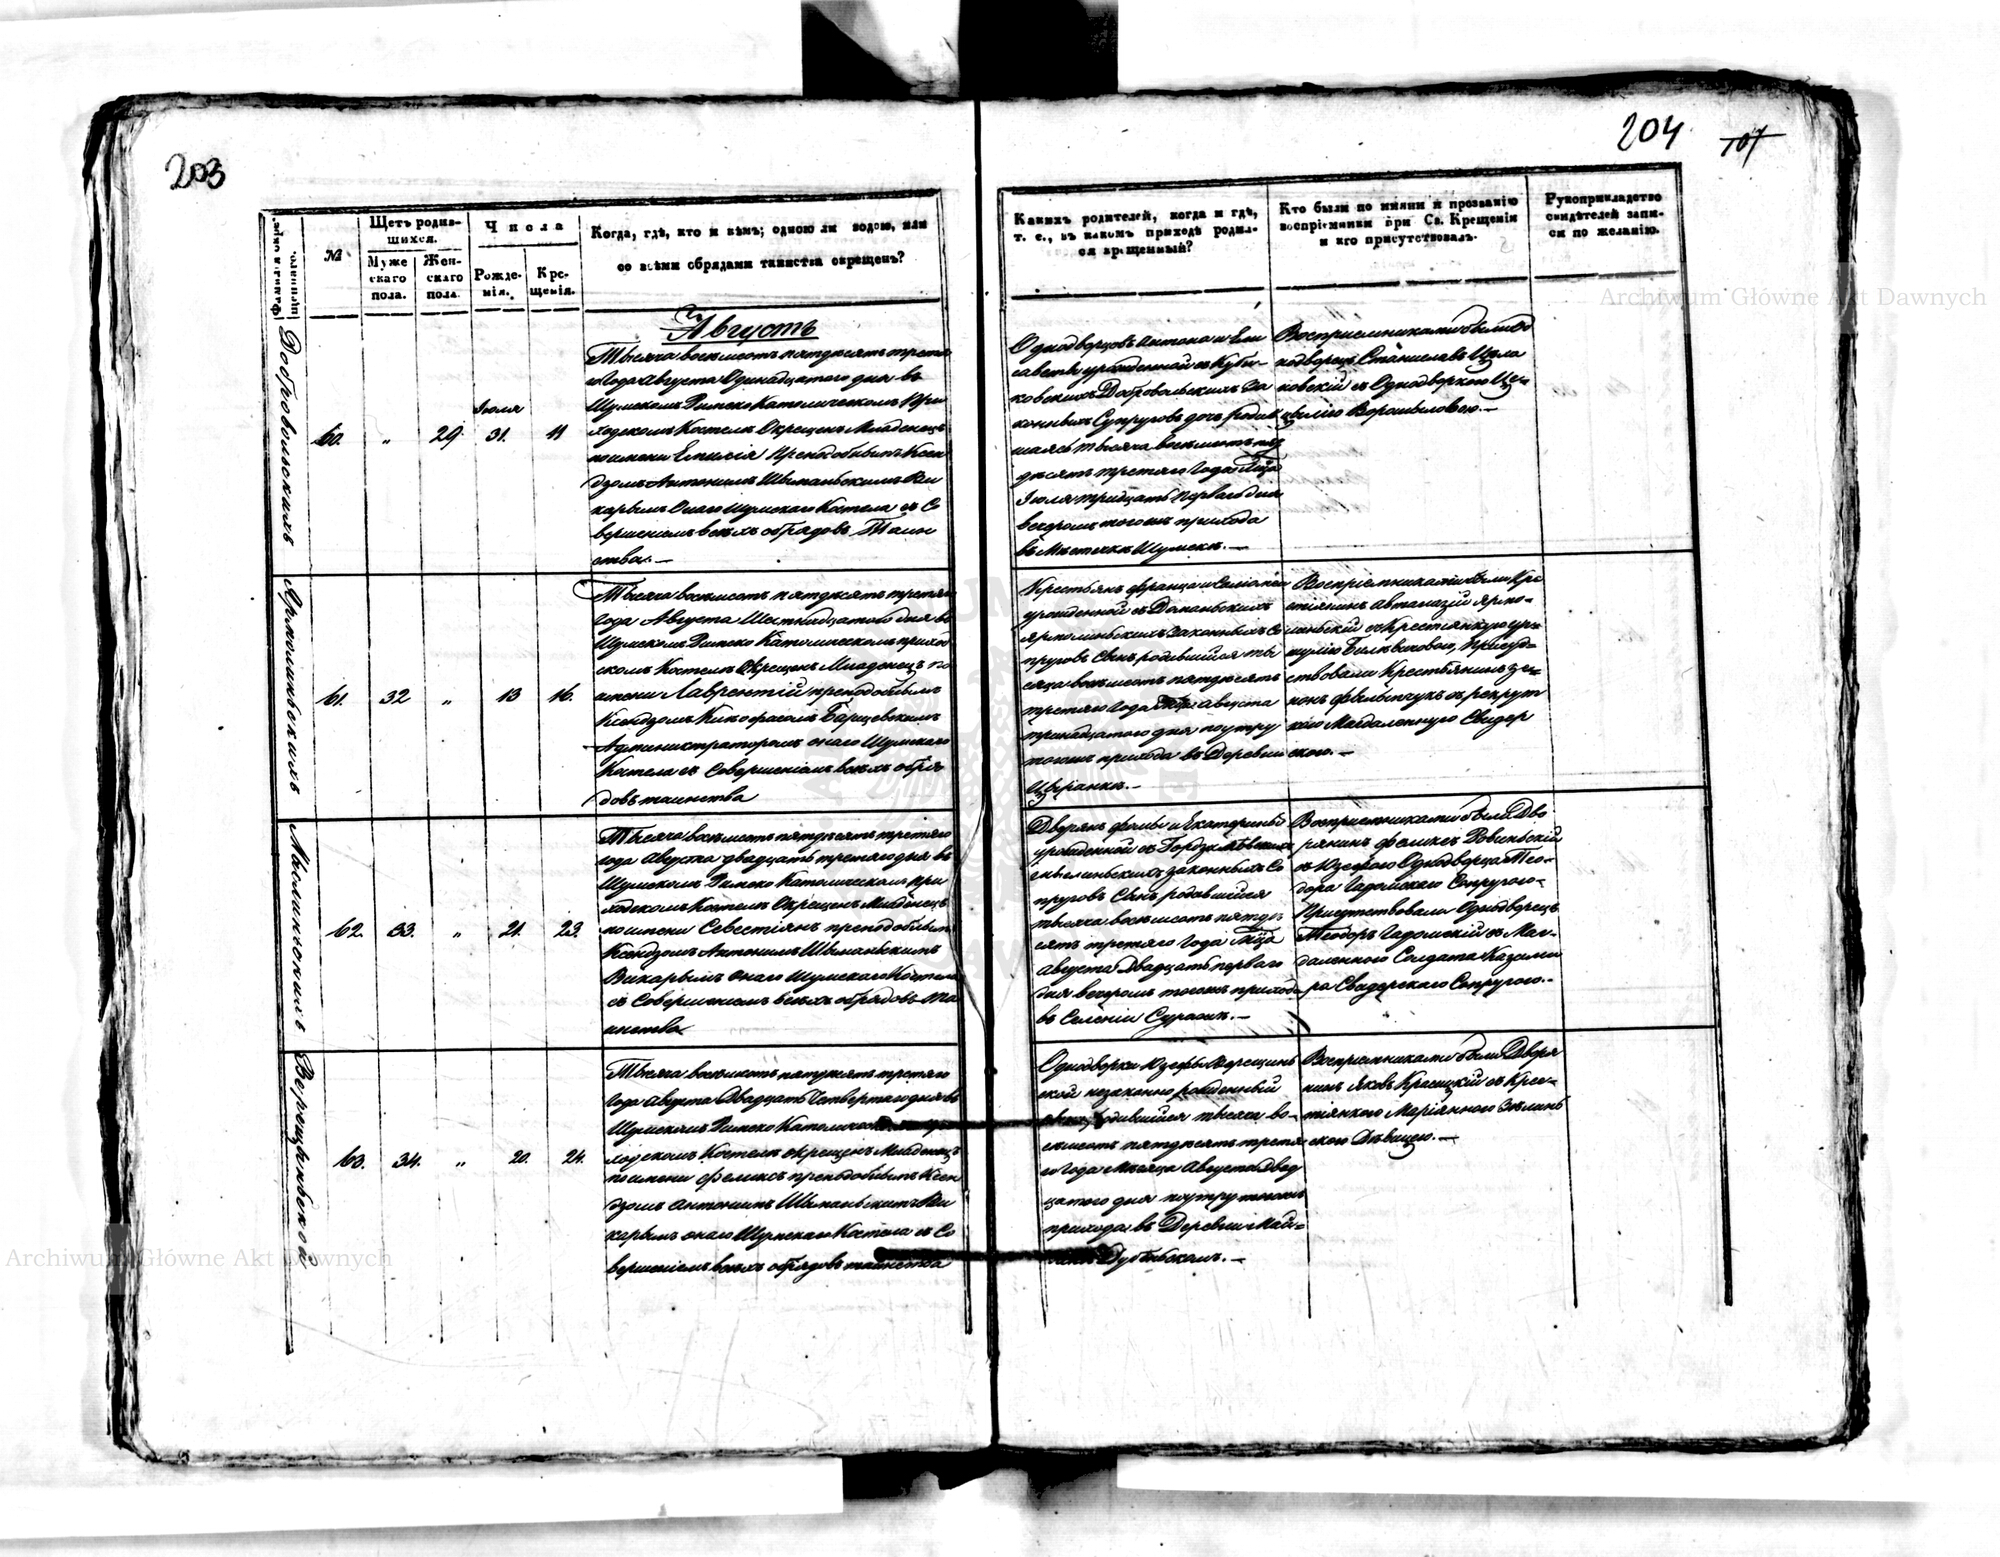 203
Фамилія окре-
щаннаго.
№
Щетъ родив-
шихся.
Муже
скаго
пола.
Жен-
скаго
пола.
Числа
Рожде-
нія.
Кре-
щенія.
Когда, гдѣ, кто и кѣмъ; одною ли водою, или
со всѣми обрядами таинства окрещенъ?
Добровольскихъ
60.
"
29.
Іюля
31.
11
Августъ
Тысяча восемьсотъ пятдесятъ третя
го Года Августа Одинадцатого дня въ
Шумскомъ Римско Католическомъ При
ходскомъ Костелѣ Окрещенъ Младенецъ
по имени Емилія Преподобнымъ Ксен
дзомъ Антониемъ Шиманьскимъ Ви
карымъ Онаго Шумскаго Костела съ Со
вершеніемъ всѣхъ обрядовъ Таин
ства. —
Ярмолиньскихъ
61.
32
"
13
16.
Тысяча восемсотъ пятдесятъ третяго
Года Августа Шестнадцатого дня въ
Шумскомъ Римско Католическомъ приход
скомъ Костелѣ Окрещенъ Младенецъ по
имени Лаврентій преподобнымъ
Ксендзомъ Никофасомъ Барщевскимъ
Администраторомъ онаго Шумскаго
Костела съ Совершеніемъ всѣхъ обря
довъ таинства
62.
33.
"
21.
23.
Тысяча восемсотъ пятдесятъ третяго
года Августа двадцать третяго дня въ
Шумскомъ Римско Католическомъ при
ходскомъ Костелѣ Окрещенъ Младенецъ
по имени Севестіянъ преподобнымъ
Ксендзомъ Антониемъ Шиманьскимъ
Викарымъ онаго Шумскаго Костела
съ Совершеніемъ всѣхъ обрядовъ Та
инства
Верещиньской
63.
34.
"
20.
24.
Тысяча восемсотъ пятдесятъ третяго
Года Августа Двадцать Четвертаго дня въ
Шумскомъ Римско Католическомъ
ходскомъ Костелѣ окрещенъ Младенецъ
по имени Феликсъ преподобнымъ Ксен
дзомъ Антониемъ Шиманьскимъ Ви
карымъ онаго Шумскаго Костела съ Со
вершеніемъ всѣхъ обрядовъ таинства
204
107
Какихъ родителей, когда и гдѣ,
т. е., въ какомъ приходѣ родил-
ся крещенный?
Кто были по имяни и прозванію
воспріемники при Св. Крещеніи
и кто присутствовалъ.
Рукоприкладство
свидѣтелей запи-
си по желанію.
Однодворцовъ Антона и Ели
саветы урожденной съ Куби-
ковскихъ Добровольскихъ За
конныхъ Супруговъ дочь родив
шаясь тысяча восемьсотъ пят
десятъ третяго Года Мца
Іюля тридцать Перваго дня
вечеромъ тогожъ прихода
въ Мѣстечкѣ Шумскѣ. —
Восприемниками были Од
нодворецъ Станиславъ
ковскій съ Однодворкою Це-
цилію Ворошиловою. —
Крестьянъ Франца и Саломеи
урожденной съ
Ярмолиньскихъ Законныхъ Су
пруговъ Сынъ родившийся ты
сяча восемсотъ пятдесятъ
третяго Года Мца Августа
тринадцатого дня поутру
тогожъ прихода въ Деревни
Цвѣранкѣ. —
Восприемниками были Кре
стіянинъ Автаназій Ярмо-
линьскій съ Крестіянкую Ур-
шулію Билевичовою, Присуд-
ствовали Крестьянинъ Зе-
нонъ съ рекрут
кою Магдаленную Свидер
скою. —
Дворянъ и Екатерины
урожденной съ
законныхъ Су
пруговъ Сынъ родившийся
тысяча восемсотъ пятде
сятъ третяго Года Мца
Августа Двадцать перваго
дня вечеромъ тогожъ прихода
въ Селеніи Суражѣ. —
Восприемниками были Дво
рянинъ Феликсъ Ровиньскій
съ Юзефою Однодворца Тео-
дора Гадомскаго Супругою-
Присутствовали Однодворецъ
Теодоръ Гадомскій съ Маг-
даленною Солдата Казими
ра Свидерскаго Супругою. —
Однодворки Юзефы Верещинь
ской незаконно рожденный
сынъ родившийся тысяча во-
семсотъ пятдесятъ третя
го Года Мѣсяца Августа Двад
цатого дня поутру тогожъ
прихода въ Деревни Май-
Восприемниками были Дворя
нинъ Яковъ Красицкій съ Крес-
тіянкою Маріянною Зѣлинь
скою Дѣвицею. —
Archiwum Główne Akt Dawnych
Archiwum Główne Akt Dawnych